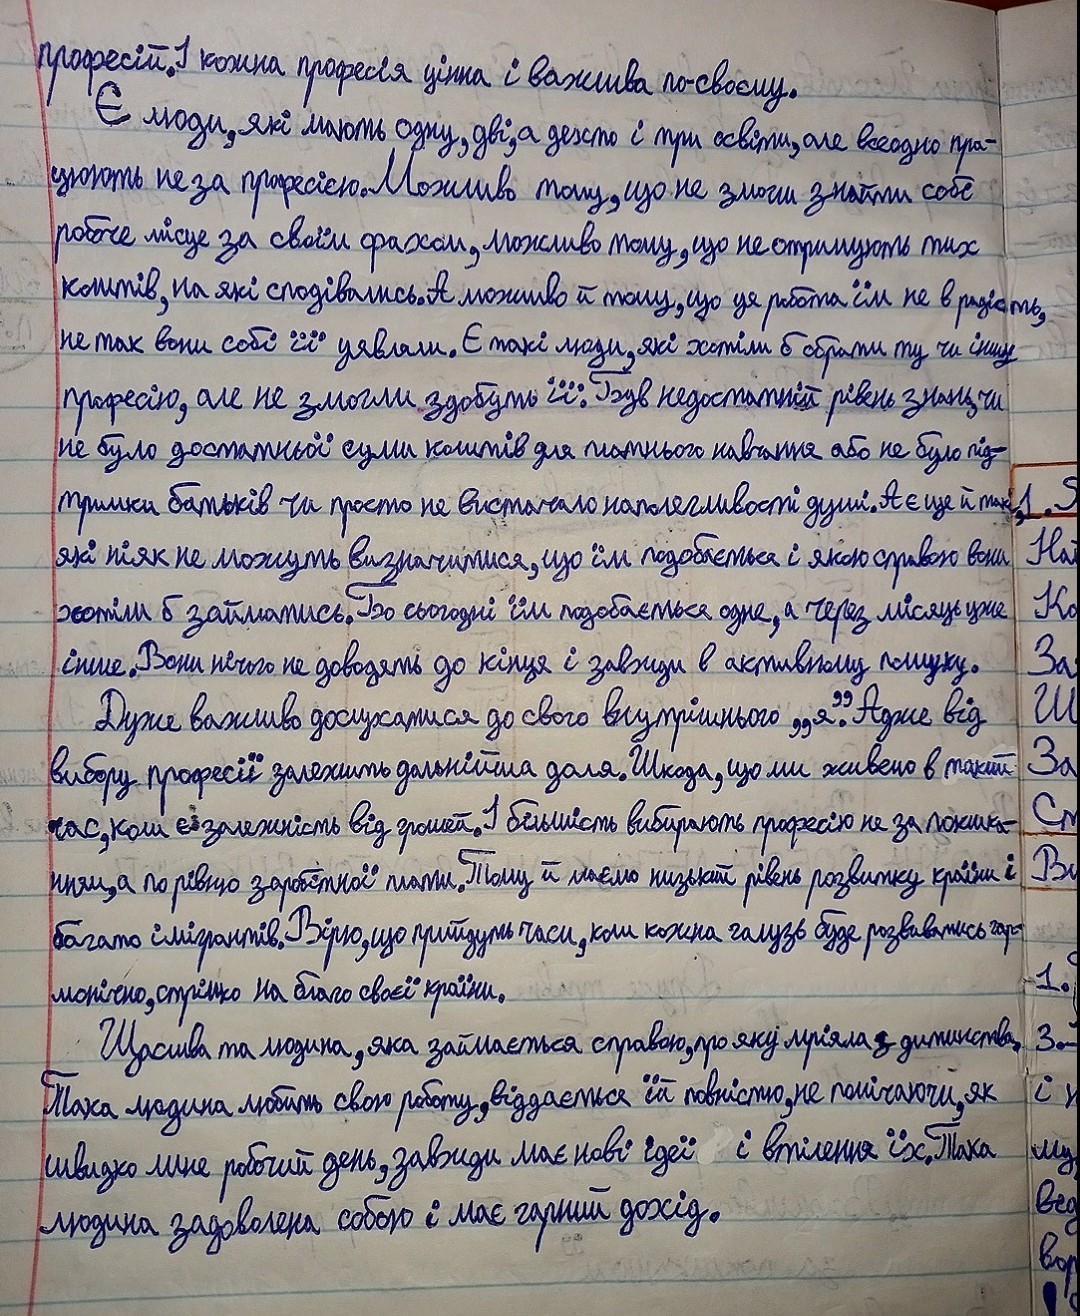 професій. І кожна професія цінна і важлива по-своєму.
Є люди, які мають одну, дві, а дехто і три освіти, але всеодно пра-
цюють не за професією. Можливо тому, що не змогли знайти собі
робоче місце за своїм фахом, можливо тому, що не отримують тих
коштів, на які сподівались. А можливо й тому, що ця робота їм не в радість,
не так вони собі її уявляли. Є такі люди, які хотіли б обрати ту чи іншу
професію, але не змогли здобуть її. Був недостатній рівень знань, чи
не було достатньої суми коштів для платнього навчання або не було під-
тримки батьків чи просто не вистачало наполегливості душі. А є ще й такі,
які ніяк не можуть визначитися, що їм подобається і якою справою вони
хотіли б займатись. Бо сьогодні їм подобається одне, а через місяць уже
інше. Вони нічого не доводять до кінця і завжди в активному пошуку.
Дуже важливо дослухатися до свого внутрішнього „я”. Адже від
вибору професії залежить дальнійша доля. Шкода, що ми живемо в такий
час, коли є залежність від грошей. І більшість вибирають професію не за поклика-
нням, а по рівню заробітної плати. Тому й маємо низький рівень розвитку країни і
багато імігрантів. Вірю, що прийдуть часи, коли кожна галузь буде розвиватись гар-
монічно, стрімко на благо своєї країни.
Щаслива та людина, яка займається справою, про яку мріяла з дитинства.
Така людина любить свою роботу, віддається їй повністю, не помічаючи, як
швидко мине робочий день, завжди має нові ідеї і втілення їх. Така
людина задоволена собою і має гарний дохід.
1.
На
Ко
За
Ш
За
Ст
Ви
1.
3.
і н
му
від
вор